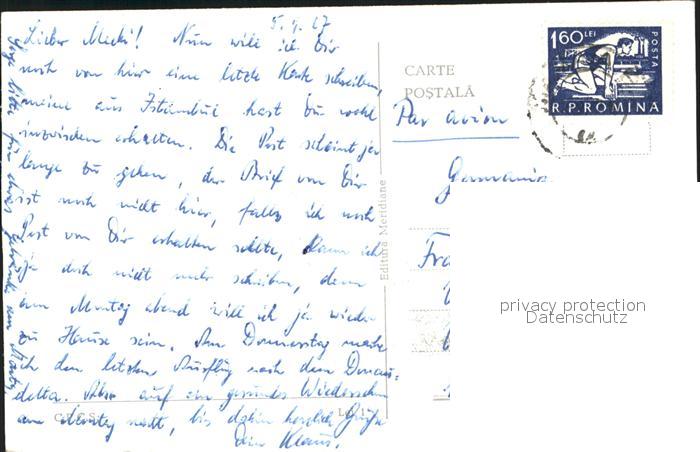 5. 9. 67
Lieber Mecki! Nun will ich Dir
noch von hier eine letzte Karte schreiben,
meine aus Istambul hast Du wohl
inzwischen erhalten. Die Post scheint ja
lange zu gehen, der Brief von Dir
ist noch nicht hier, falls ich noch
Post von Dir erhalten sollte, kann ich
ja doch nicht mehr schreiben, denn
am Montag abend will ich ja wieder
zu Hause sein. Am Donnerstag mache
ich den letzten Ausflug nach dem Donau-
delta. Also auf ein gesundes Wiedersehn
am Montag nacht, bis dahin herzlich Grüße
Dein Klaus.
Editura Meridiane
CARTE
POȘTALĂ
Par avion
1,60 LEI
POSTA
R.P.ROMINA
Germania
Fra
privacy protection
Datenschutz